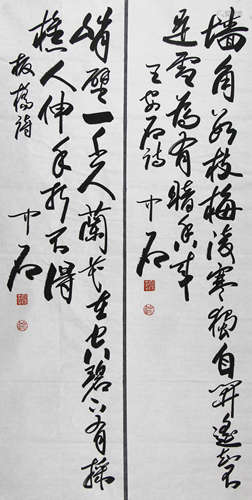 墙角数枝梅凌寒独自開遥知不
是雪為有暗香来
王安石诗 中石
峭壁一千尺蘭花在空碧下有採
樵人伸手折不得
板橋诗 中石